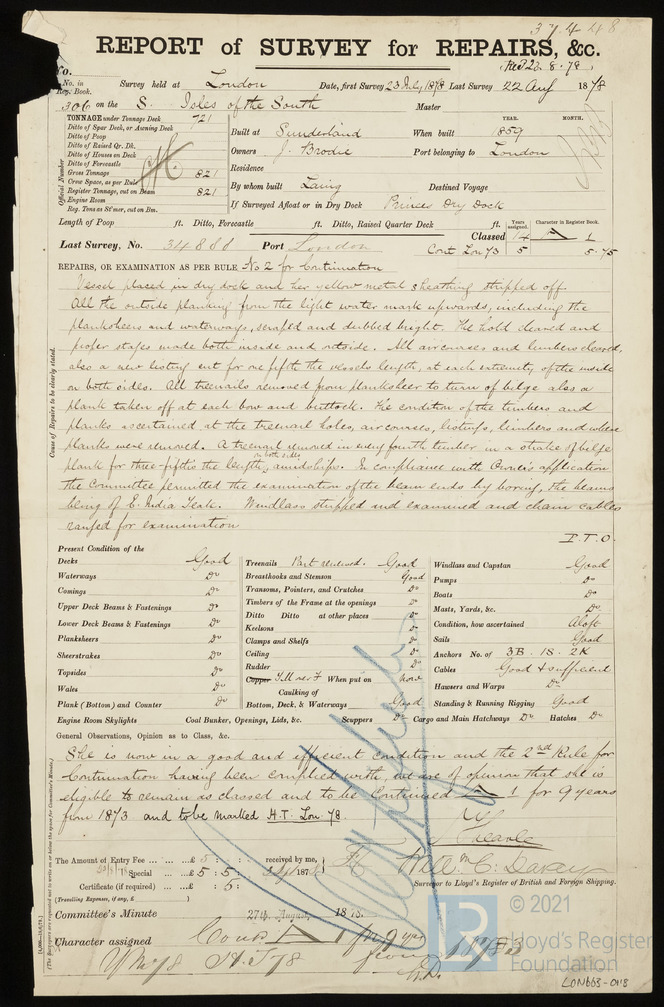 37448
REPORT of SURVEY for REPAIRS, &c.
Rec 23. 8. 78
No.
No. in Reg. Book. Survey held at London Date, first Survey 23 July 1878 Last Survey 22 Aug 1878
306 on the S. Isles of the South Master
TONNAGE under Tonnage Deck 721
Ditto of Spar Deck, or Awning Deck
Ditto of Poop
Ditto of Raised Qr. Dk.
Ditto of Houses on Deck
Ditto of Forecastle
Gross Tonnage 821
Crew Space, as per Rule
Register Tonnage, cut on Beam 821
Engine Room
Reg. Tons as St'mer, cut on Bm.
Official Number
YEAR. MONTH.
Built at Sunderland When built 1859
Owners J. Brodie Port belonging to London
Residence
By whom built Laing Destined Voyage
If Surveyed Afloat or in Dry Dock Princes Dry Dock
Length of Poop ft. Ditto, Forecastle ft. Ditto, Raised Quarter Deck ft.
Years assigned. Character in Register Book.
Last Survey, No. 34888 Port London Classed 14 A 1
Cont Lon 73 5 5.75
REPAIRS, OR EXAMINATION AS PER RULE No 2 for Continuation
Cause of Repairs to be clearly stated.
Vessel placed in dry dock and her yellow metal sheathing stripped off.
All the outside planking from the light water mark upwards, including the
planksheers and waterways, scraped and dubbed bright. The hold cleared and
proper stages made both inside and outside. All aircourses and limbers cleared,
also a new listing cut for one fifth the vessels length, at each extremity of the inside
on both sides. All treenails removed from planksheer to turn of bilge also a
plank taken off at each bow and buttock. The condition of the timbers and
planks ascertained at the treenail holes, air courses, listings, limbers and where
planks were removed. A treenail removed in every fourth timber in a strake of bilge
plank for three-fifths the length, on both sides amidships. In compliance with Owner's application
the Committee permitted the examination of the beam ends by boring, the beams
being of E. India Teak. Windlass stripped and examined and chain cables
ranged for examination
P.T.O.
Present Condition of the
Decks Good
Waterways Do
Comings Do
Upper Deck Beams & Fastenings Do
Lower Deck Beams & Fastenings Do
Planksheers Do
Sheerstrakes Do
Topsides Do
Wales Do
Plank (Bottom) and Counter Do
Treenails Part renewed. Good
Breasthooks and Stemson Good
Transoms, Pointers, and Crutches Do
Timbers of the Frame at the openings Do
Ditto Ditto at other places Do
Keelsons Do
Clamps and Shelfs Do
Ceiling Do
Rudder Do
Copper Y.M. over F When put on now
Caulking of
Bottom, Deck, & Waterways Good
Windlass and Capstan Good
Pumps Do
Boats Do
Masts, Yards, &c. Do
Condition, how ascertained Aloft
Sails Good
Anchors No. of 3B. 1S. 2K
Cables Good & sufficient
Hawsers and Warps Do
Standing & Running Rigging Good
Engine Room Skylights Coal Bunker, Openings, Lids, &c. Scuppers Do Cargo and Main Hatchways Do Hatches Do
General Observations, Opinion as to Class, &c.
She is now in a good and efficient condition and the 2nd Rule for
Continuation having been complied with, we are of opinion that she is
eligible to remain as classed and to be Continued A 1 for 9 years
from 1873 and to be marked H.T. Lon 78
The Amount of Entry Fee £ 5 : : received by me,
Special £ 5 : 5 : 187
Certificate (if required) : 5 :
(Travelling Expenses, if any, £ )
Wm C. Davey
Surveyor to Lloyd's Register of British and Foreign Shipping.
Committee's Minute 27th August 1878.
Character assigned Cont A 1 for 9 yrs
from 1873
YM 78 H.T 78
(The Surveyors are requested not to write on or below the space for Committee's Minute.)
© 2021
LR
Lloyd's Register
Foundation
LON663-0118